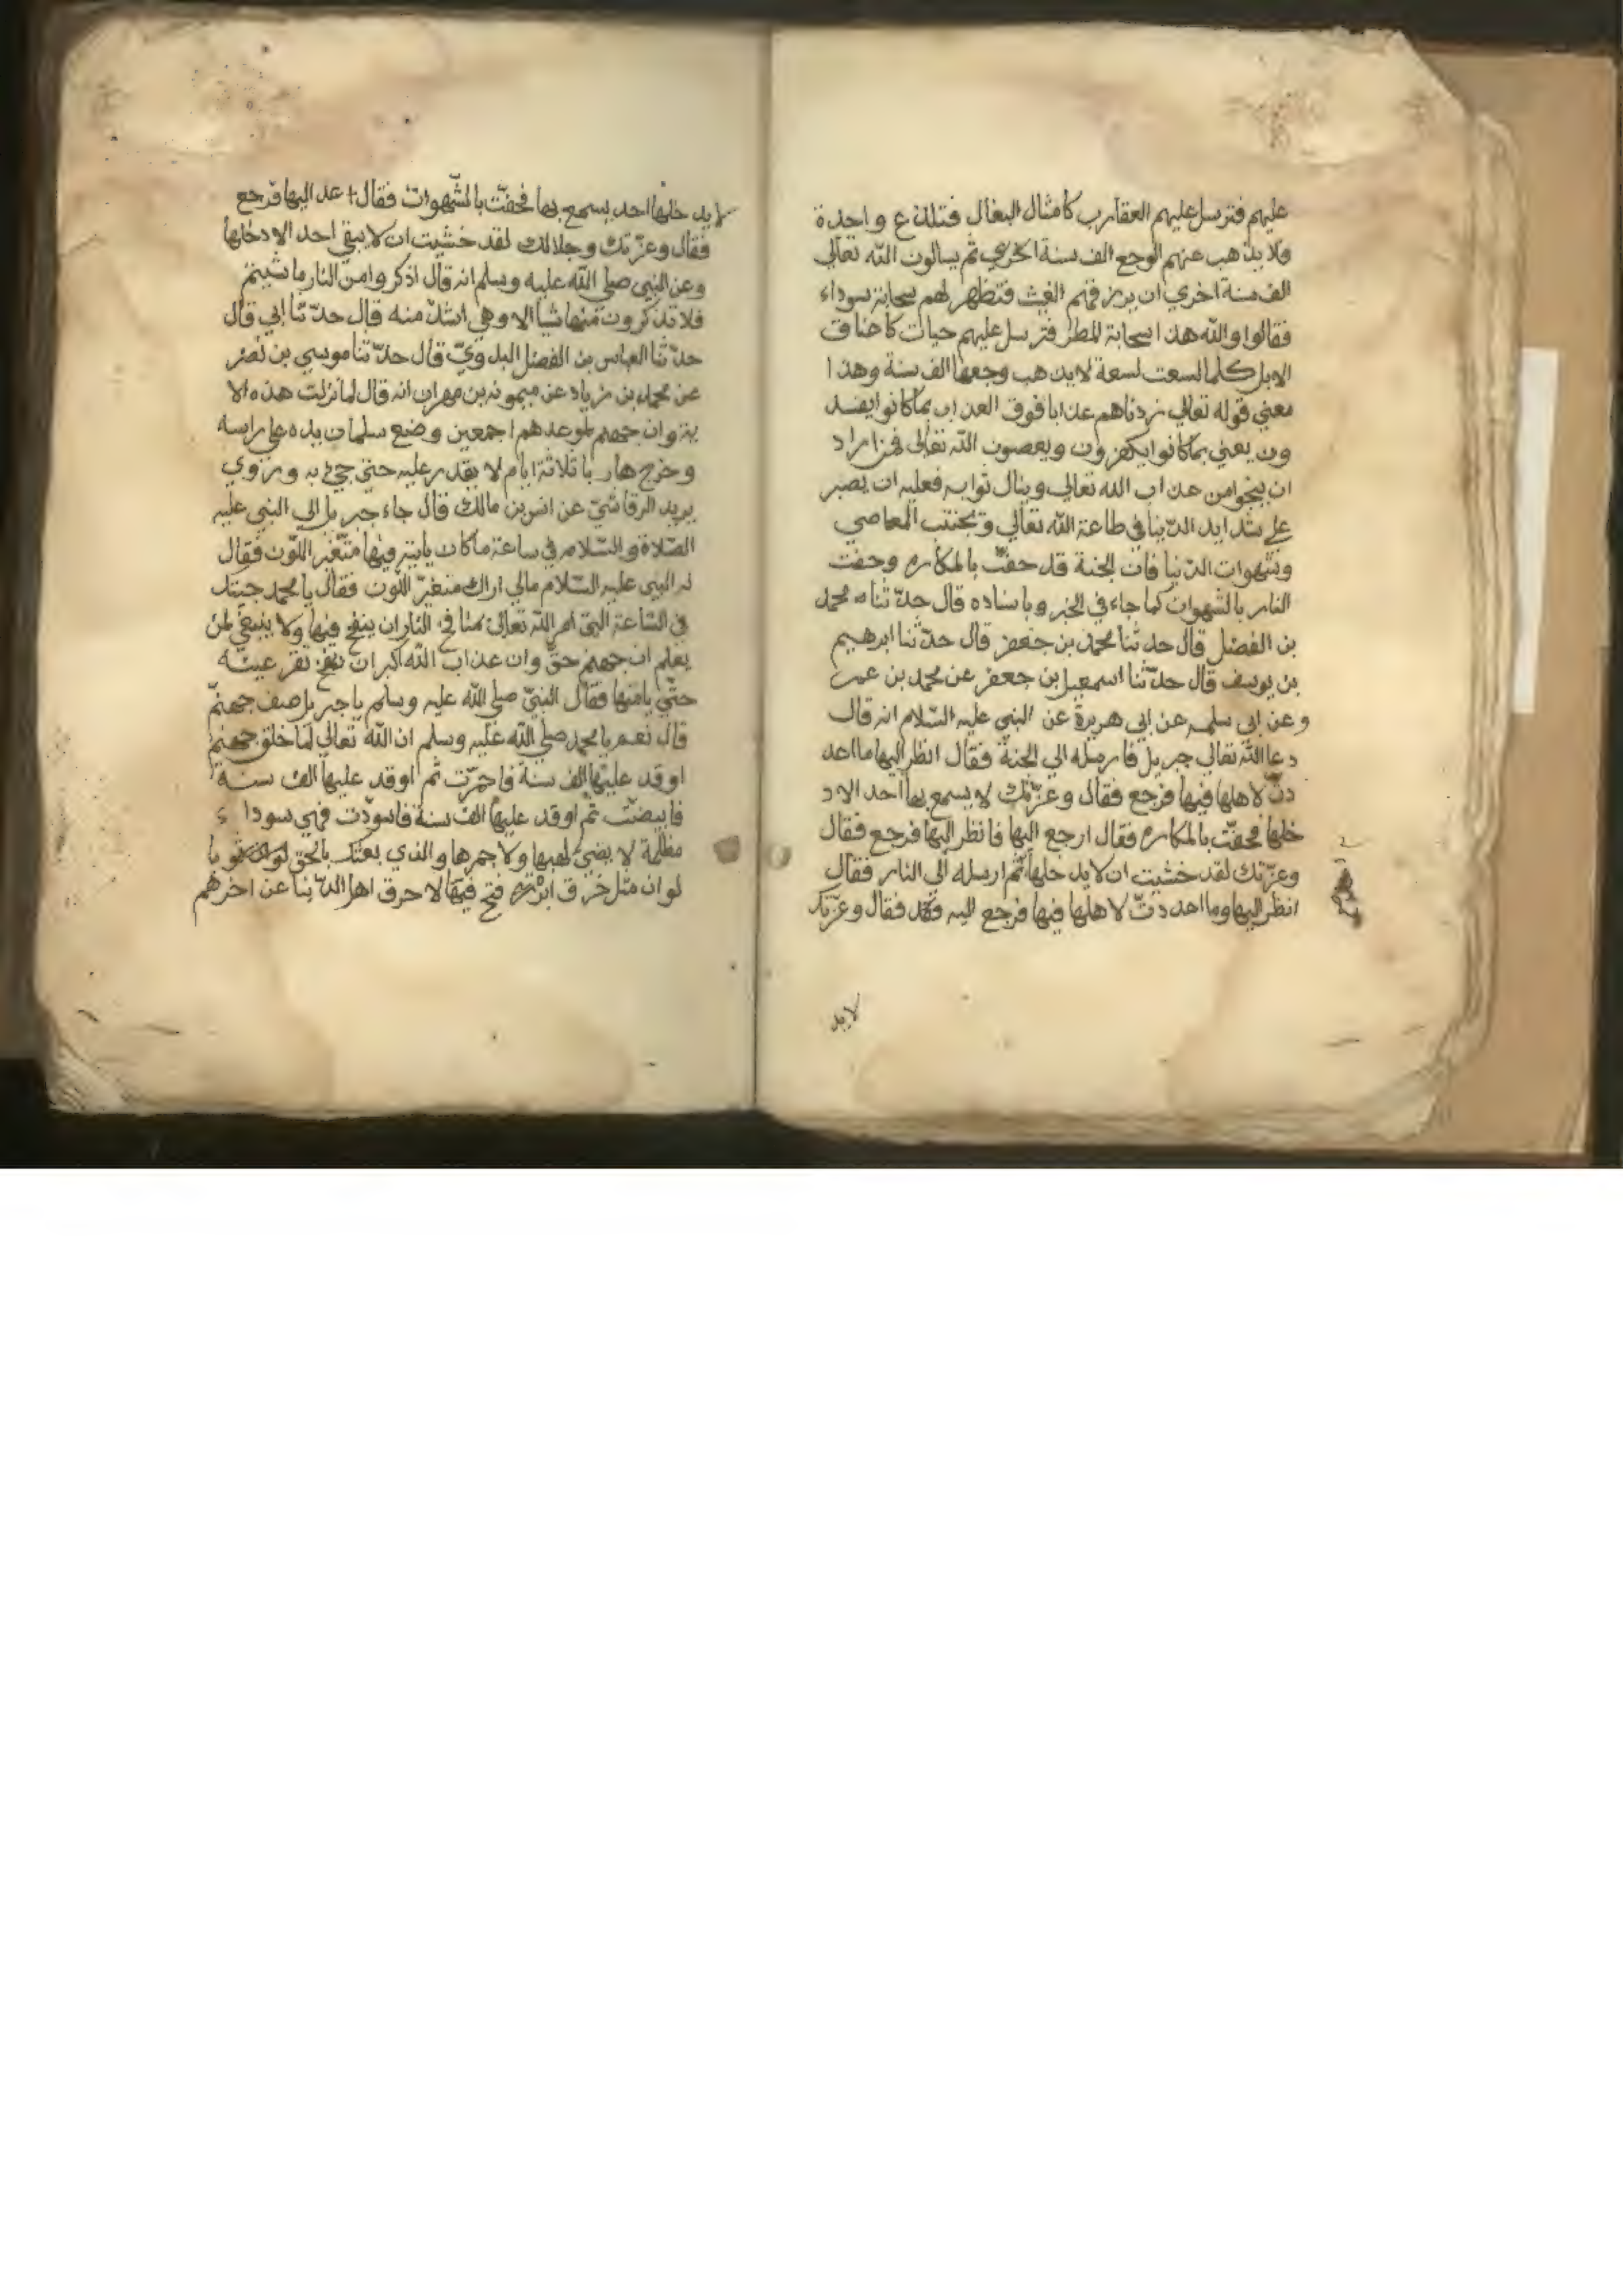 عليهم فترسل عليهم العقارب كامثال البغال فتلذع واحدة
ولا يذهب عنهم الوجع الف سنة اخري ثم يسالون الله تعالي
الف سنة اخري ان يرزقهم الغيث فتظهر لهم سحابة سوداء
فقالوا والله هذا سحابة المطر فترسل عليهم حيات كاعناق
الابل كلما لسعت لسعة لا يذهب وجعها الف سنة وهذا
معني قوله تعالي زدناهم عذابا فوق العذاب بماكانوا يفسد
ون يعني بماكانوا يكفرون ويعصون الله تعالي فمن اراد
ان ينجوا من عذاب الله تعالي وينال ثوابه فعليه ان يصبر
علي شدايد الدّنيا في طاعة الله تعالي وتجتنب المعاصي
وشهوات الدّنيا فان الجنة قد حفّت بالمكاره وحفت
النار بالشهوات كما جاء في الخبر وباسناده قال حدّثنا محمد
بن الفضل قال حدثنا محمد بن جعفر قال حدّثنا ابرهيم
بن يوسف قال حدّثنا اسمعيل بن جعفر عن محمد بن عمر
وعن ابي سلمه عن ابي هريرة عن النبي عليه السّلام انه قال
دعا الله تعالي جبريل فارسله الي الجنة فقال انظر اليها مااعد
دتّ لاهلها فيها فرجع فقال وعزّتك لا يسمع بها احد الا د
خلها فحفّت بالمكاره فقال ارجع اليها فانظر اليها فرجع فقال
وعزّتك لقد خشيت ان لايد خلها ثم ارسله الي النار فقال
انظر اليها ومااعددتّ لاهلها فيها فرجع اليه فقال وعزّتك
لايد
لايد خلها احد يسمع بها فحفّت بالشّهوات فقال عد اليها فرجع
فقال وعزّتك وجلالك لقد خشيت ان لا يبقي احد الا دخلها
وعن النبي صلي الله عليه وسلم انه قال اذكروا من النار ما شيتم
فلا تذكرون منها شيا الا وهي اشدّ منه قال حدّثنا ابي قال
حدّثنا العباس بن الفضل البلدويّ قال حدّثنا موسي بن نصر
عن محمد بن زياد عن ميمونه بن مهران انه قال لما نزلت هذه الا
ية وان جهنم لموعدهم اجمعين وضع سلمان يده علي راسه
وخرج هاربا ثلاثة ايام لا يقدر عليه حتي جئ به وروي
يريد الرقاشيّ عن انس بن مالك قال جاء جبريل الي النبي عليه
الصّلاة والسّلام في ساعة ماكان ياتيه فيها متغيّر اللّون فقال
له النبي عليه السّلام مالي اراك متغيرّ اللّون فقال يا محمد جيتك
في السّاعة التي امر الله تعالي بمنافخ النار ان ينفخ فيها ولا ينبغي لمن
يعلم ان جهنم حقّ وان عذاب الله اكبر ان تقر عينه
حتّي يامنها فقال النبيّ صلي الله عليه وسلم يا جبريل صف جهنّم
قال نعم يا محمد صلي الله عليه وسلم ان الله تعالي لما خلق جهنم
اوقد عليها الف سنة فاحمرّت ثم اوقد عليها الف سنة
فابيضّت ثم اوقد عليها الف سنة فاسودّت فهي سوداء
مظلمة لا يضيئ لهبها ولا جمرها والذي بعثك بالحق
لو ان مثل خرق ابرة فتح فيها لا حرق اهل الدّنيا عن اخرهم